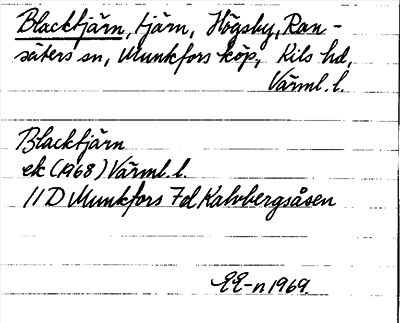 Blacktjärn, tjärn, Högsby, Ran-
säters sn, Munkfors köp, Kils hd,
Värml. l.
Blacktjärn
ek (1968) Värml. l.
11 D Munkfors 7d Kalvbergsåsen
EE-n 1969